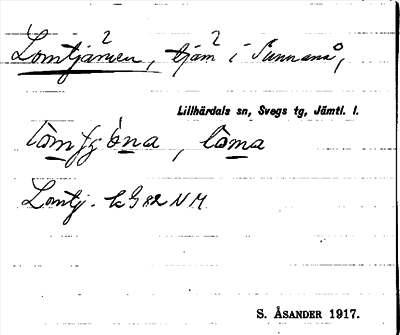 Lomtjärnen, tjärn i Sunnanå,
Lillhärdals sn, Svegs tg, Jämtl. l.
lòma
Lomtj. k G 82 NM
S. ÅSANDER 1917.